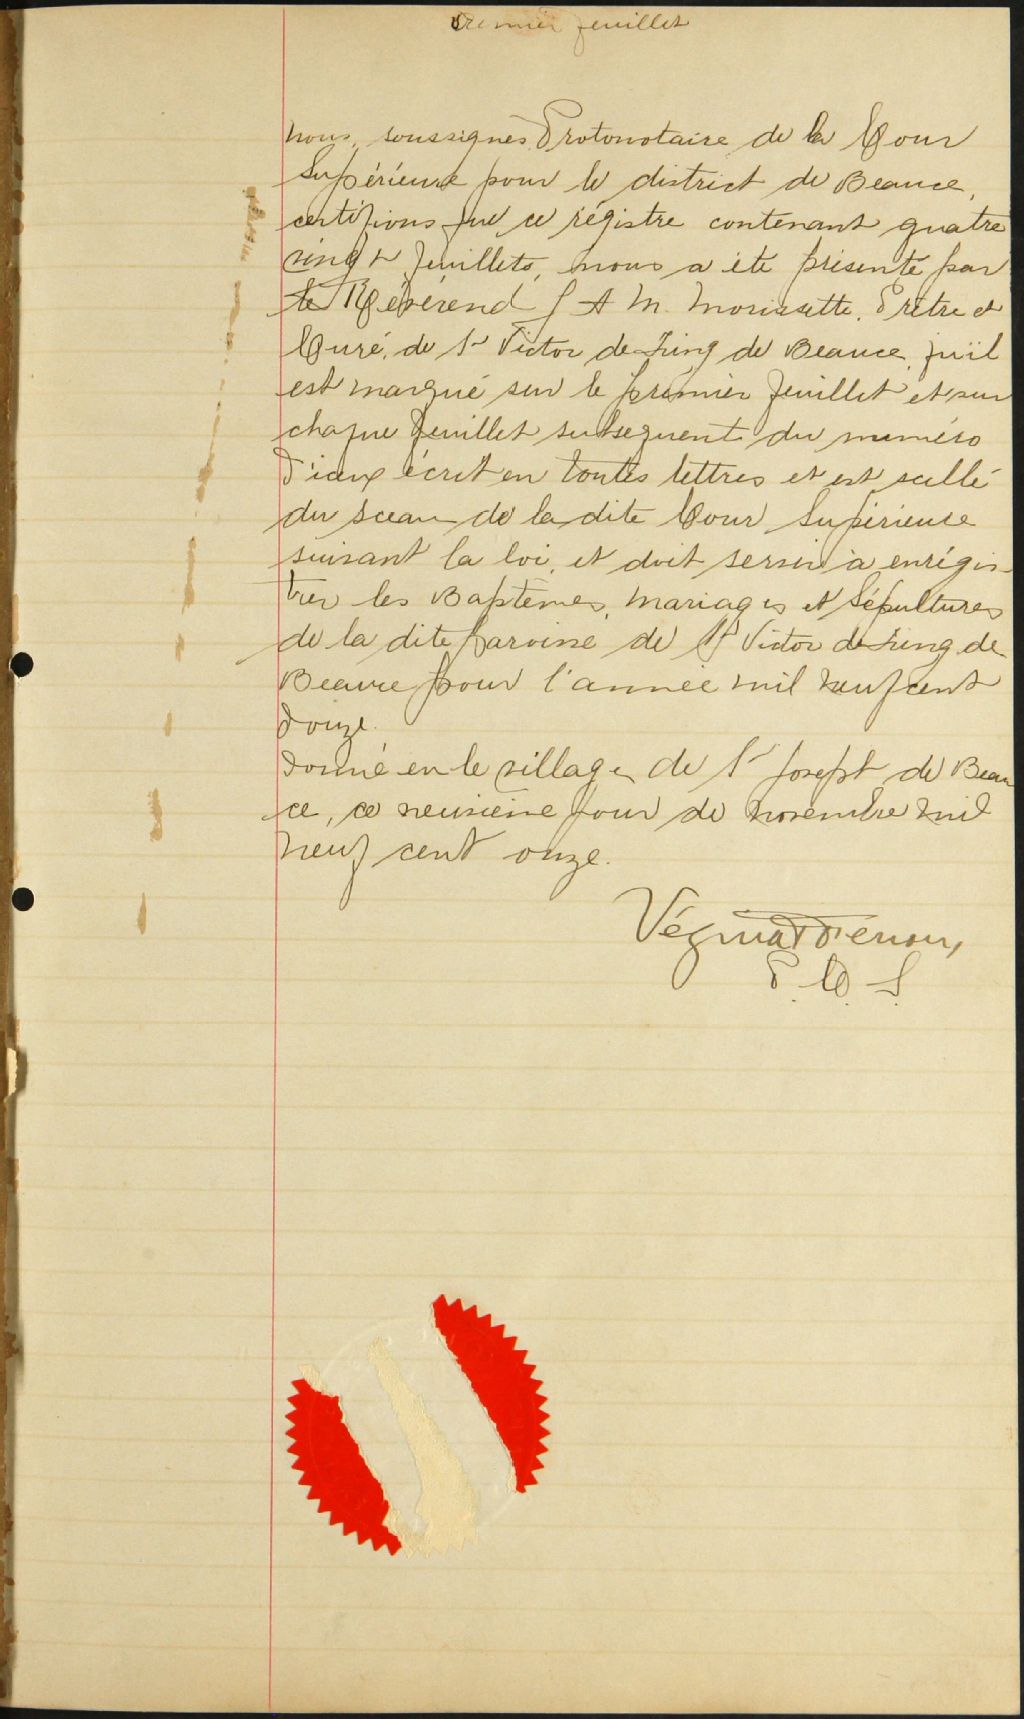 Premier feuillet
Nous, soussignés, Protonotaire de la Cour
Supérieure pour le district de Beauce,
certifions que ce régistre contenant quatre
vingt feuillets, nous a été présenté par
le Révérend J A M. Morissette, Prêtre et
Curé, de St Victor de Tring de Beauce, qu'il
est marqué sur le premier feuillet et sur
chaque feuillet subséquent du numéro
d'iceux écrit en toutes lettres et est scellé
du sceau de la dite Cour Supérieure
suivant la loi, et doit servir à enrégis-
trer les Baptêmes, Mariages et Sépultures
de la dite Paroisse de St Victor de Tring de
Beauce pour l'année mil neuf cent
douze.
Donné en le village de St Joseph de Beau
ce, ce neuvième jour de Novembre mil
neuf cent onze.
P. C. S.